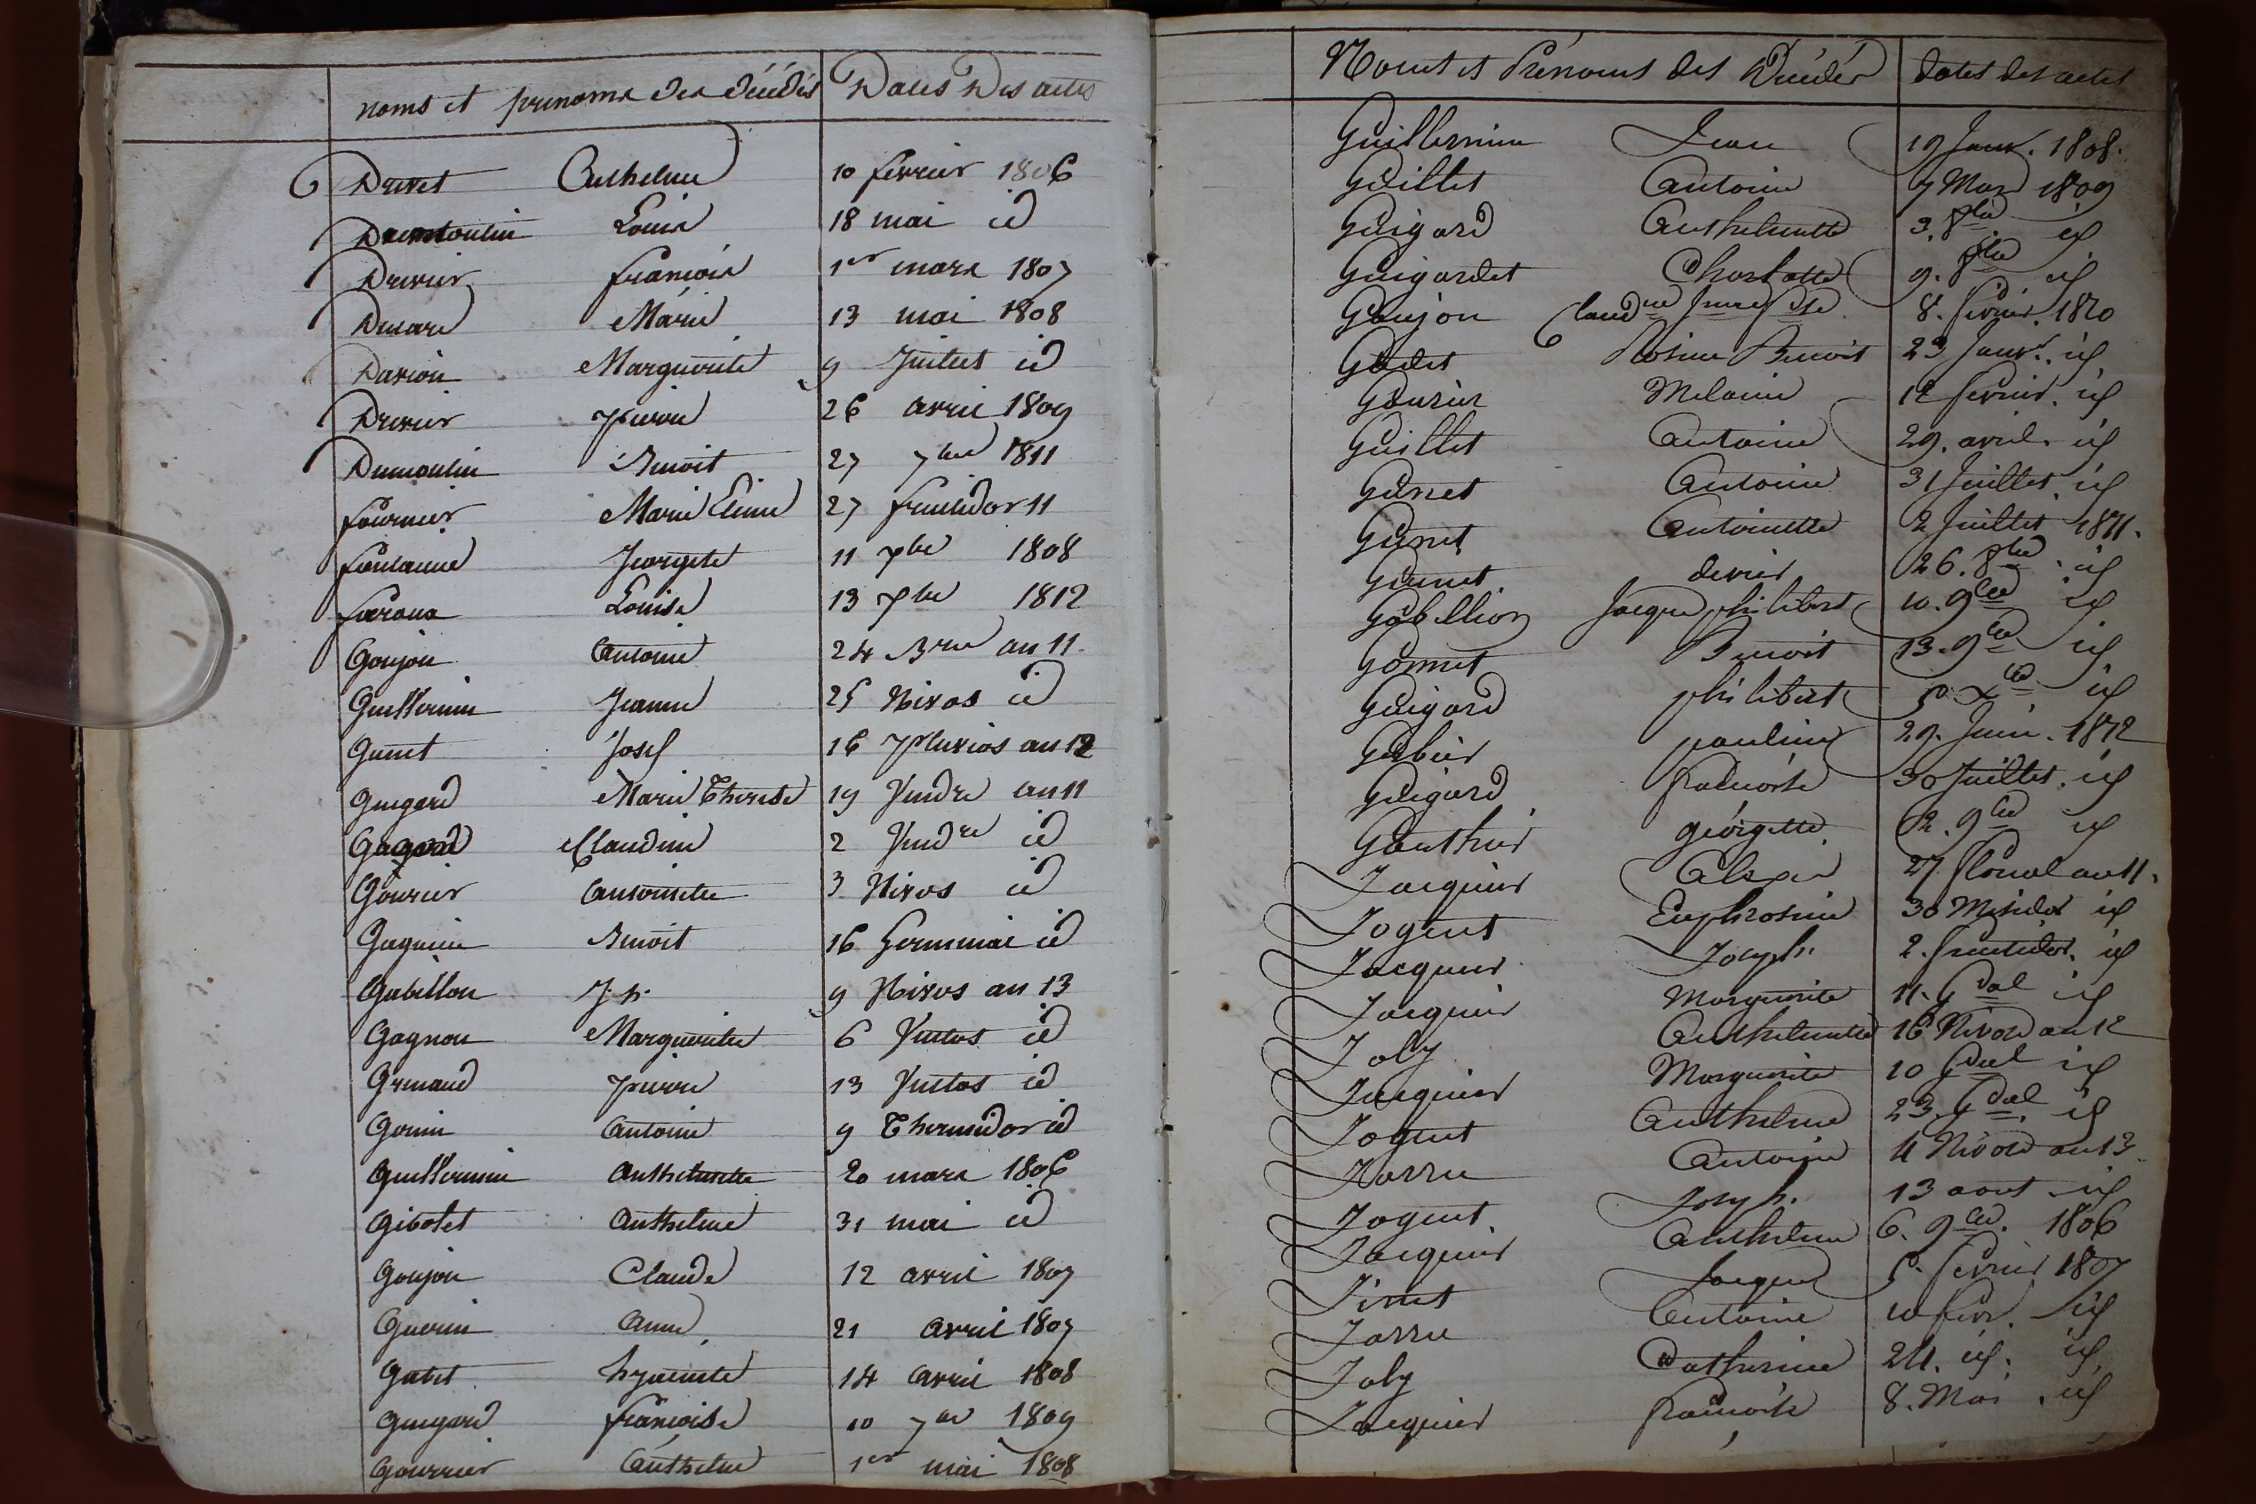 noms et prenoms des décédés Dates Des actes
Drivet Anthelme 10 fevrier 1806
Dumoulin Louis 18 mai id
Drevier François 1er mars 1807
Marie 13 mai 1808
Darion Marguerite 9 Juillet id
Drevier Pierre 26 avril 1809
Dumoulin Benoit 27 7bre 1811
Fournier Marie 27 fructidor 11
Fontanne Georgete 11 7bre 1808
Louise 13 7bre 1812
Goujon Antoine 24 Bre an 11
Guillermin Jeanne 25 Nivos id
Gunet Josef 16 Pluvios an 12
Guigard Marie Therese 19 Vendre an 11
Claudine 2 Vendre id
Gourier Antoinette 3 Nivos id
Gagnin Benoit 16 Germinal id
Gabillon J. h. 9 Nivos an 13
Gagnon Marguerite 6 Ventos id
Grinand Pierre 13 Ventos id
Gonin Antoine 9 Thermidor id
Guillermin Anthelmette 20 mars 1806
Gibolet Anthelme 31 mai id
Goujon Claude 12 avril 1807
Guerin Anne 21 avril 1807
Gabet hyacinte 14 avril 1808
Guigard françoise 10 7bre 1809
Gourrier Anthelme 1er mai 1808
Noms et Prénoms des Décédés dates des actes
Guillermin Jean 19 Janv. 1808.
Guillet Antoine 7 Mars 1809
Guigard Anthelmette 3. 8bre id
Guigardet Charlotte 9. 8bre id
Goujon 8. fevrier. 1810
Godet Rosine Benoit 23 Janvr. id
Gourier Melanie 12 fevrier. id
Guillet Antoine 29. avril. id
Gunet Antoine 31 Juillet. id
Gunet Antoinette 2 Juillet 1811.
Gunet 26. 8bre. id
Gabillion Jacques philibert 10. 9bre id
Gonnet Benoit 13. 9bre id
Guigard philibert 5. Xbre id
Gerbier pauline 29. Juin. 1812
Guigard françoise 30 Juillet. id
Gauthier géorgette 2. 9bre id
Jacquier Alexis 27 floreal an 11.
Jogent Euphrosine 30 Messidor id
Jacquier Joseph. 2. fructidor. id
Jacquier Marguerite 11. Gal id
Joly Anthelmette 16 Nivose an 12
Jacquier Marguerite 10 Gal id
Jogent Anthelme 23. Gal id
Jarru Antoine 4 Nivose an 13
Jogent. Joseph. 13 aout id
Jacquier Anthelme 6. 9bre. 1806
Jinet Jacques 5. fevrier 1807
Jarru Antoine 10 fevr. id
Joly Catherine 24. id. id
Jacquier françoise 8. Mai. id